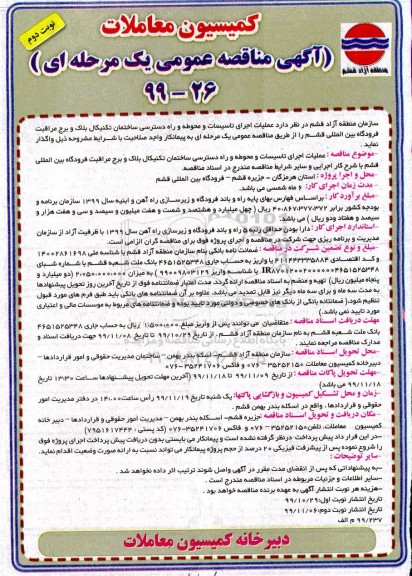 کمیسیون معاملات
نوبت دوم
(آگهی مناقصه عمومی یک مرحله ای)
۹۹ - ۲۶
منطقه آزاد قشم
سازمان منطقه آزاد قشم در نظر دارد عملیات اجرای تاسیسات و محوطه و راه دسترسی ساختمان تکنیکال بلاک و برج مراقبت
فرودگاه بین المللی قشم را از طریق مناقصه عمومی یک مرحله ای به پیمانکار واجد صلاحیت با شرایط مشروحه ذیل واگذار
نماید.
-موضوع مناقصه : عملیات اجرای تاسیسات و محوطه و راه دسترسی ساختمان تکنیکال بلاک و برج مراقبت فرودگاه بین المللی
قشم با شرح کار اجرایی و سایر شرایط مناقصه مندرج در اسناد مناقصه.
-محل و اجرا پروژه : استان هرمزگان - جزیره قشم - فرودگاه بین المللی قشم
-مدت زمان اجرای کار: ۶ ماه شمسی می باشد.
-مبلغ برآورد کار : براساس فهارس بهای پایه راه و باند فرودگاه و زیرسازی راه آهن و ابنیه سال ۱۳۹۹ سازمان برنامه و
بودجه کشور برابر ۴۰،۸۶۷،۳۷۷،۳۷۲ ریال ( چهل میلیارد و هشتصد و شصت و هفت میلیون و سیصد و سی و هفت هزار و
سیصد و هفتاد ودو ریال ) می باشد.
-استاندارد اجرای کار: دارا بودن حداقل رتبه راه و باند فرودگاه و زیرسازی راه آهن سال ۱۳۹۹ با ظرفیت آزاد از سازمان
مدیریت و برنامه ریزی جهت شرکت در مناقصه و اجرای پروژه فوق برای مناقصه گران الزامی است.
-مبلغ و نوع تضمین شرکت در مناقصه : ضمانت نامه بانکی بنام سازمان منطقه آزاد قشم با شناسه ملی ۱۴۰۰۲۸۶۱۶۹۸
و کد اقتصادی ۴۱۱۳۴۳۳۵۸۸۴ یا واریز به حساب جاری ۴۶۵۱۵۲۵۳۴۸ بانک ملت شعبه قشم با شماره شبای
پنجاه میلیون ریال) تهیه و منضم به اسناد مناقصه ارائه گردد. مدت اعتبار ضمانتنامه فوق از تاریخ آخرین روز تحویل پیشنهادها
به مدت سه ماه و برای سه ماه دیگر نیز قابل تمدید می باشد. علاوه بر آن ضمانتنامه های بانکی باید طبق فرم های مورد قبول
تنظیم شود.( ضمانتنامه بانکی از بانک های خصوصی و دولتی مورد تایید بوده و ضمانتنامه های مربوط به موسسات مالی و اعتباری
مورد تایید نمی باشد.)
-مهلت دریافت اسناد مناقصه : متقاضیان می توانند پس از واریز مبلغ ۱،۵۰۰،۰۰۰ ریال به حساب جاری ۴۶۵۱۵۲۵۳۴۸
بانک ملت شعبه قشم به نام سازمان منطقه آزاد قشم، از تاریخ ۹۹/۱۰/۲۹ تا تاریخ ۹۹/۱۱/۰۸ جهت دریافت اسناد و
مدارک مناقصه مراجعه نمایند.
-محل تحویل اسناد مناقصه : سازمان منطقه آزاد قشم- اسکله بندر بهمن – ساختمان مدیریت حقوقی و امور قراردادها -
دبیرخانه کمیسیون معاملات ۳۵۲۵۲۱۵۰ - ۰۷۶ و فاکس ۳۵۲۴۱۷۰۶-۰۷۶
-مهلت تحویل پاکات مناقصه : از تاریخ ۹۹/۱۱/۰۹ تا ۹۹/۱۱/۱۸ (آخرین مهلت تحویل پیشنهادها ساعت ۱۳:۳۰ تاریخ
۹۹/۱۱/۱۸ می باشد)
-زمان و محل تشکیل کمیسیون و بازگشایی پاکتها: یک شنبه تاریخ ۹۹/۱۱/۱۹ رأس ساعت ۱۴:۰۰ در دفتر مدیریت امور
حقوقی و قراردادها ، واقع در اسکله بندر بهمن قشم .
-مکان دریافت و تحویل اسناد مناقصه :جزیره قشم- اسکله بندر بهمن – مدیریت امور حقوقی و قراردادها - دبیر خانه
کمیسیون معاملات. تلفن:۳۵۲۵۲۱۵۰-۰۷۶ و فاکس ۳۵۲۴۱۷۰۶-۰۷۶ (کد پستی : ۷۹۵۱۶۱۷۴۴۴)
-در این قرار داد پیش پرداخت درنظر گرفته نشده است و پیمانکار می بایستی بدون دریافت پیش پرداخت اجرای پروژه فوق
را شروع نموده پس از پیشرفت فیزیکی ۲۰ درصد از حجم پروژه پیمانکار می تواند نسبت به ارائه صورت وضعیت اقدام نماید.
-سایر توضیحات :
-به پیشنهاداتی که پس از انقضای مدت مقرر در آگهی واصل شوند ترتیب اثر داده نخواهد شد .
-سایر اطلاعات و جزئیات مربوطه در اسناد مناقصه مندرج است .
-هزینه هر نوبت انتشار آگهی به عهده برنده مناقصه خواهد بود .
تاریخ انتشار نوبت اول: ۹۹/۱۰/۲۹
تاریخ انتشار نوبت دوم: ۹۹/۱۱/۰۶
۹۹/۲۳۷ م الف
دبیرخانه کمیسیون معاملات